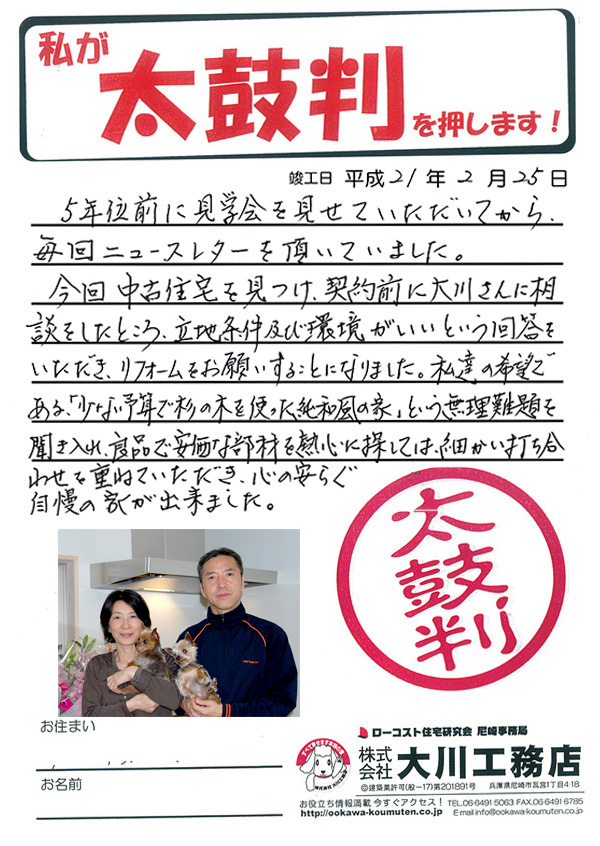 私が
太鼓判
を押します！
竣工日 平成21年2月25日
5年位前に見学会を見せていただいてから、
毎回ニュースレターを頂いていました。
今回中古住宅を見つけ、契約前に大川さんに相
談をしたところ、立地条件及び環境がいいという回答を
いただき、リフォームをお願いすることになりました。私達の希望で
ある、「少ない予算で杉の木を使った純和風の家」という無理難題を
聞き入れ、良品で安価な部材を熱心に探しては、細かい打ち合
わせを重ねていただき、心の安らぐ
自慢の家が出来ました。
太鼓判
お住まい
お名前
ローコスト住宅研究会 尼崎事務局
株式会社 大川工務店
◎建築業許可(般－17)第201891号 兵庫県尼崎市瓦宮1丁目4-18
お役立ち情報満載 今すぐアクセス！ TEL.06-6491-5063 FAX.06-6491-6785
http://ookawa-koumuten.co.jp E-mail info@ookawa-koumuten.co.jp